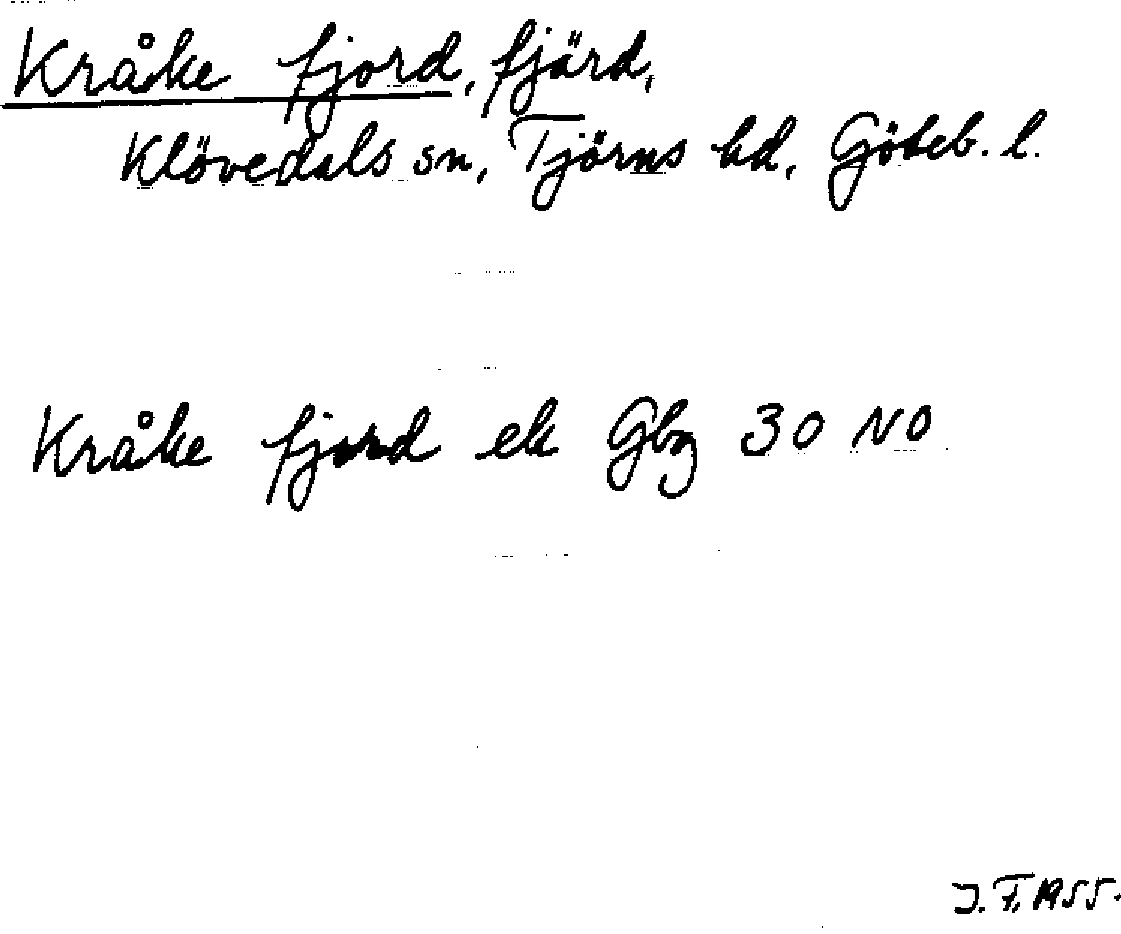 Kråke fjord, fjärd,
Klövedals sn, Tjörns hd, Göteb. l.
Kråke fjord ek Gbg 30 NO
J. F. 1955.